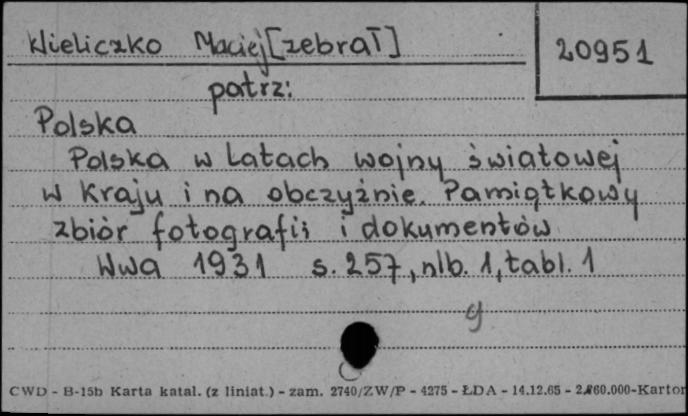 Wieliczko Maciej [zebrał]
20951
patrz:
Polska
Polska w Latach wojny światowej
w kraju i na obczyźnie. Pamiątkowy
zbiór fotografii i dokumentów
Wwa 1931 s. 257, nlb. 1, tabl. 1
g
CWD - B-15b Karta katal. (z liniat.) - zam. 2740/ZW/P - 4275 - ŁDA - 14.12.65 - 2.860.000-Karton